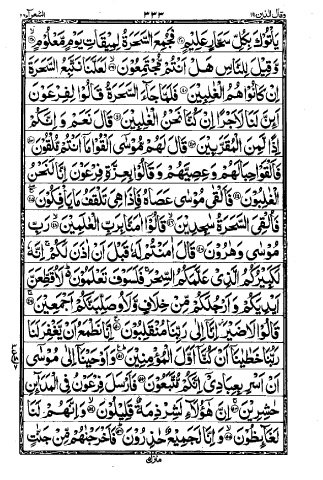 وقال الذين ١٩ ٣٣٣ الشعرآء ٢٦
يَاْتُوْكَ بِكُلِّ سَحَّارٍ عَلِيْمٍ ۝ فَجُمِعَ السَّحَرَةُ لِمِيْقَاتِ يَوْمٍ مَّعْلُوْمٍ ۝
وَّقِيْلَ لِلنَّاسِ هَلْ اَنْتُمْ مُّجْتَمِعُوْنَ ۝ لَعَلَّنَا نَتَّبِعُ السَّحَرَةَ
اِنْ كَانُوْا هُمُ الْغٰلِبِيْنَ ۝ فَلَمَّا جَآءَ السَّحَرَةُ قَالُوْا لِفِرْعَوْنَ
اَئِنَّ لَنَا لَاَجْرًا اِنْ كُنَّا نَحْنُ الْغٰلِبِيْنَ ۝ قَالَ نَعَمْ وَاِنَّكُمْ
اِذًا لَّمِنَ الْمُقَرَّبِيْنَ ۝ قَالَ لَهُمْ مُّوْسٰٓى اَلْقُوْا مَآ اَنْتُمْ مُّلْقُوْنَ ۝
فَاَلْقَوْا حِبَالَهُمْ وَعِصِيَّهُمْ وَقَالُوْا بِعِزَّةِ فِرْعَوْنَ اِنَّا لَنَحْنُ
الْغٰلِبُوْنَ ۝ فَاَلْقٰى مُوْسٰى عَصَاهُ فَاِذَا هِيَ تَلْقَفُ مَا يَاْفِكُوْنَ ۝
فَاُلْقِيَ السَّحَرَةُ سٰجِدِيْنَ ۝ قَالُوْٓا اٰمَنَّا بِرَبِّ الْعٰلَمِيْنَ ۝ رَبِّ
مُوْسٰى وَهٰرُوْنَ ۝ قَالَ اٰمَنْتُمْ لَهٗ قَبْلَ اَنْ اٰذَنَ لَكُمْ ۚ اِنَّهٗ
لَكَبِيْرُكُمُ الَّذِيْ عَلَّمَكُمُ السِّحْرَ ۚ فَلَسَوْفَ تَعْلَمُوْنَ ۬ لَاُقَطِّعَنَّ
اَيْدِيَكُمْ وَاَرْجُلَكُمْ مِّنْ خِلَافٍ وَّلَاُوصَلِّبَنَّكُمْ اَجْمَعِيْنَ ۝
قَالُوْا لَا ضَيْرَ ۡ اِنَّآ اِلٰى رَبِّنَا مُنْقَلِبُوْنَ ۝ اِنَّا نَطْمَعُ اَنْ يَّغْفِرَ لَنَا
رَبُّنَا خَطٰيٰنَآ اَنْ كُنَّآ اَوَّلَ الْمُؤْمِنِيْنَ ۝ وَاَوْحَيْنَآ اِلٰى مُوْسٰٓى
اَنْ اَسْرِ بِعِبَادِيْٓ اِنَّكُمْ مُّتَّبَعُوْنَ ۝ فَاَرْسَلَ فِرْعَوْنُ فِي الْمَدَآئِنِ
حٰشِرِيْنَ ۝ اِنَّ هٰٓؤُلَآءِ لَشِرْذِمَةٌ قَلِيْلُوْنَ ۝ وَاِنَّهُمْ لَنَا
لَغَآئِظُوْنَ ۝ وَاِنَّا لَجَمِيْعٌ حٰذِرُوْنَ ۝ فَاَخْرَجْنٰهُمْ مِّنْ جَنّٰتٍ